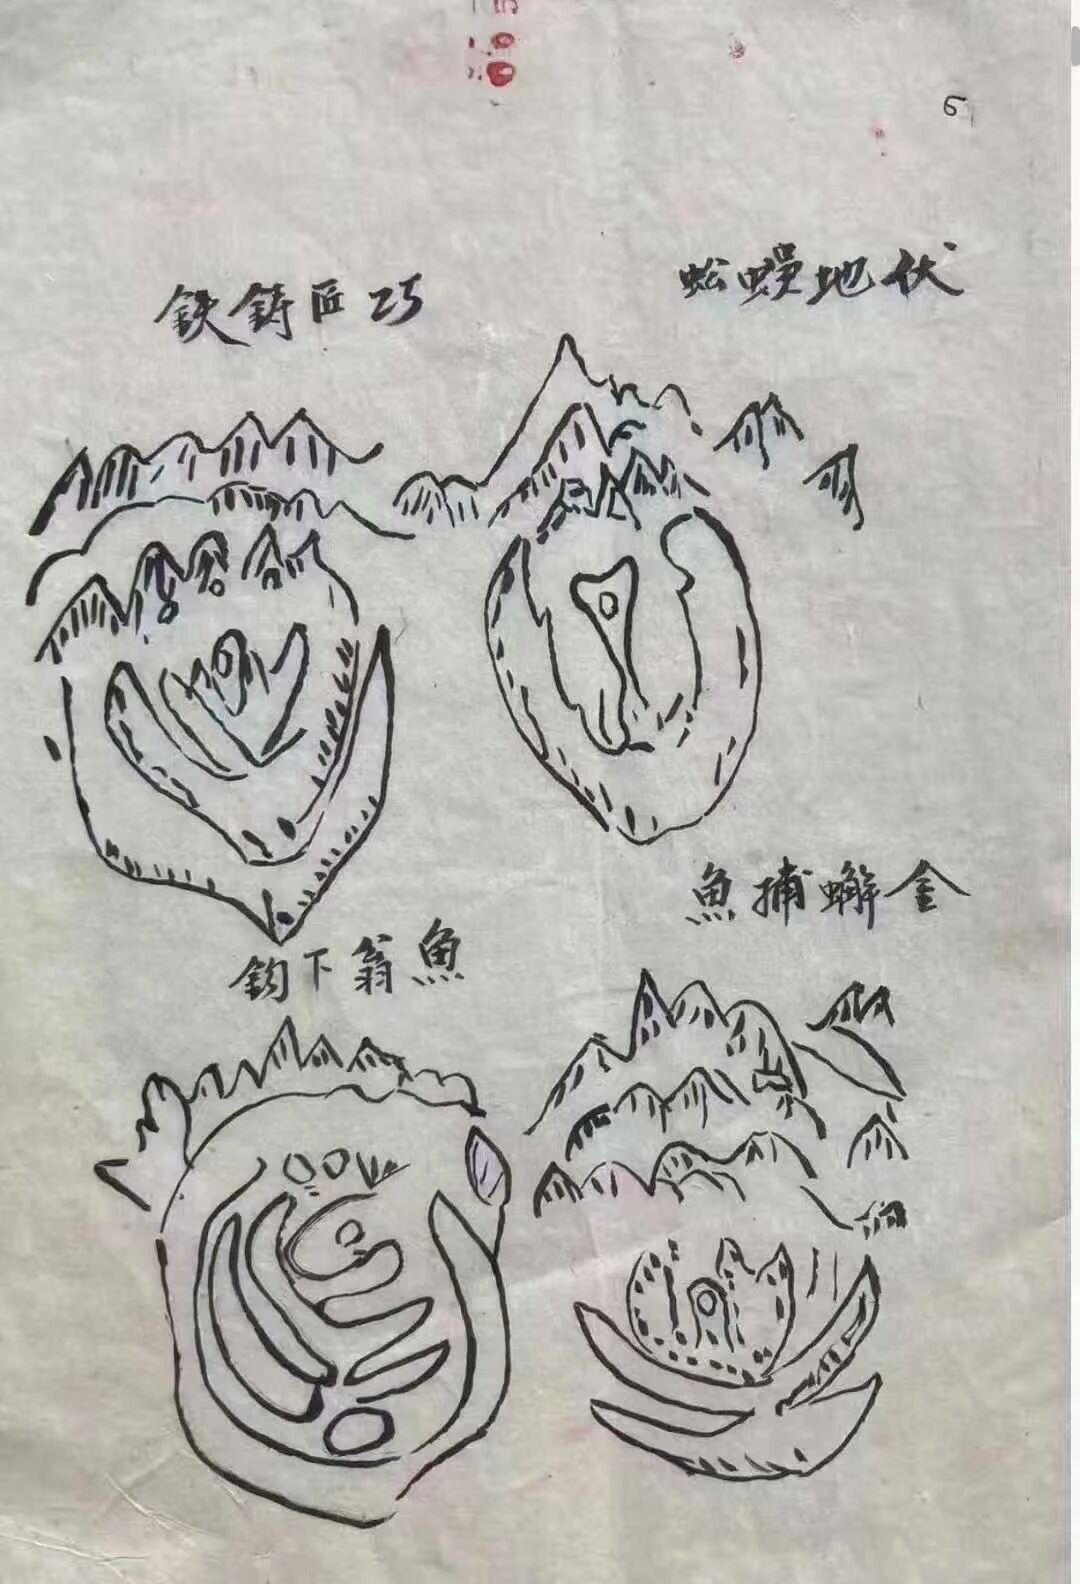 伏地蜈蚣
巧匠鋳鉄
金蠏捕魚
魚翁下鈎